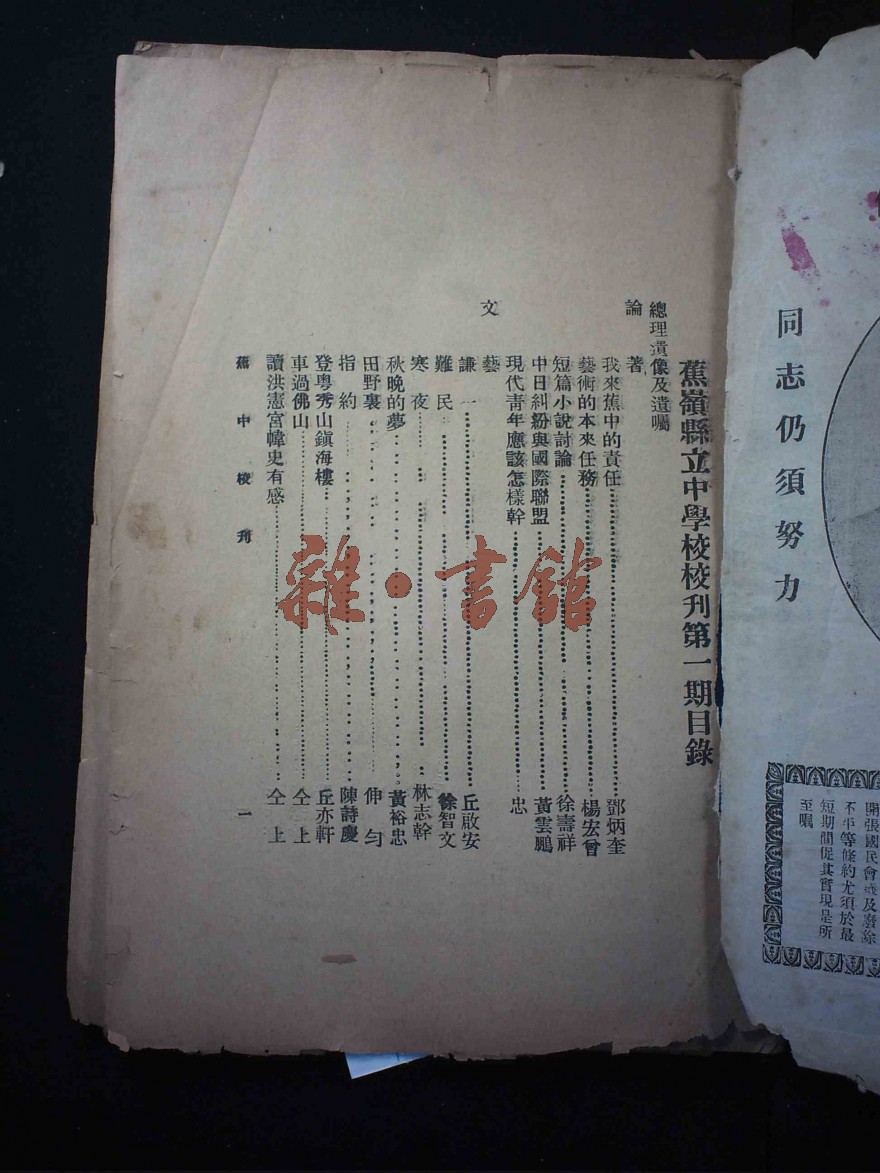 同志仍須努力
開張國民會議及廢除
不平等條約尤須於最
短期間促其實現是所
至囑
蕉嶺縣立中學校校刊第一期目錄
總理遺像及遺囑
論著
我來蕉中的責任 鄧炳奎
藝術的本來任務 楊宏曾
短篇小說討論 徐壽祥
中日糾紛與國際聯盟 黃雲鵬
現代青年應該怎樣幹 忠
文藝
謙一 丘啟安
難民 徐智文
寒夜 林志幹
秋晚的夢 黃裕忠
田野裏 伸勻
指約 陳詩慶
登粵秀山鎮海樓 丘亦軒
車過佛山 仝上
讀洪憲宮幃史有感 仝上
蕉中校刊 一
雜·書館